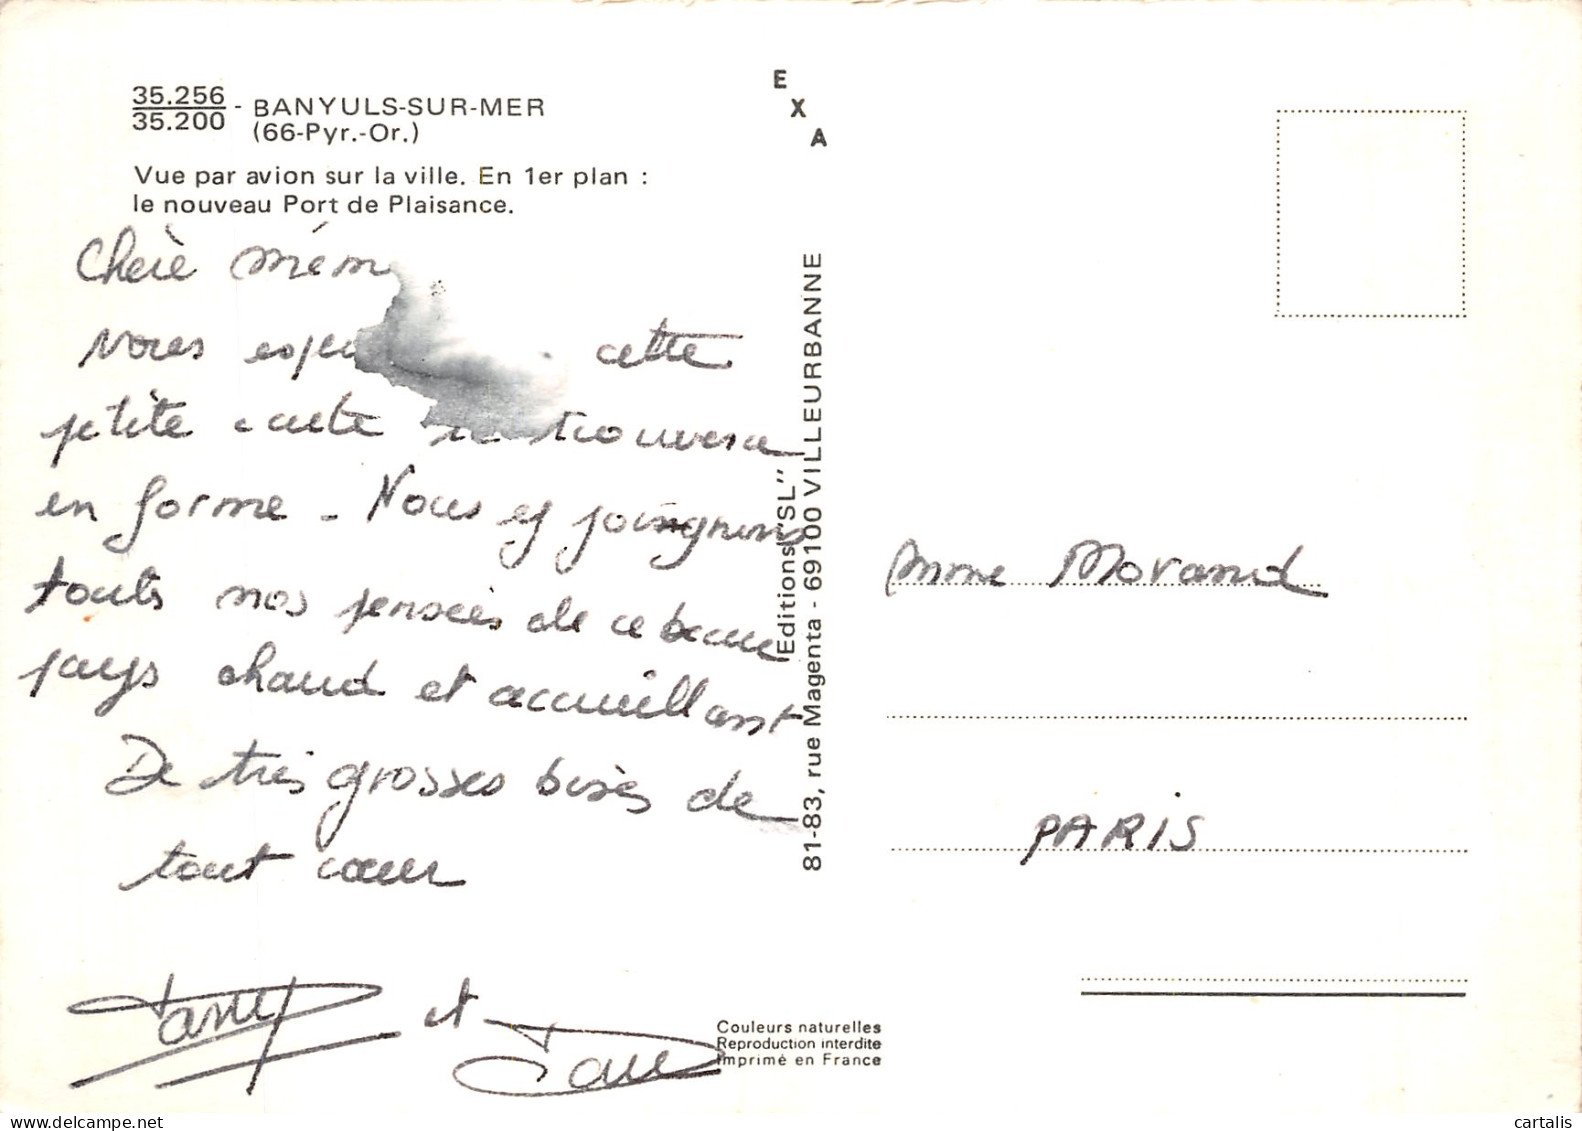 35.256
35.200 - BANYULS-SUR-MER
(66-Pyr.-Or.)
Vue par avion sur la ville. En 1er plan :
le nouveau Port de Plaisance.
E
X
A
Chère mém
Nous espe cette
petite carte te trouvera
en forme - Nous y joingnons
touts nos pensées de ce beau
pays chaud et accueillant
De très grosses bises de
tout cœur
et
Editions "SL"
81-83, rue Magenta - 69100 VILLEURBANNE
Mme Morand
PARIS
Couleurs naturelles
Reproduction interdite
Imprimé en France
cartalis